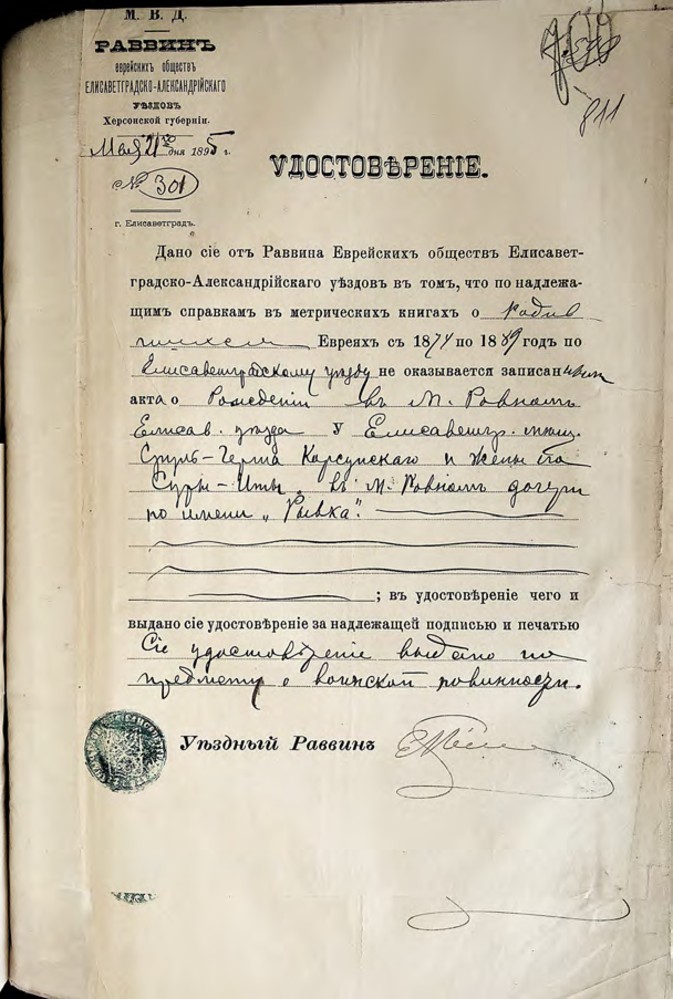 М. В. Д.
РАВВИНЪ
еврейскихъ обществъ
ЕЛИСАВЕТГРАДСКО-АЛЕКСАНДРІЙСКАГО
УѢЗДОВЪ
Херсонской губерніи.
Мая 21 дня 1895 г.
№ 301
г. Елисаветградъ.
811
УДОСТОВѢРЕНІЕ.
Дано сіе отъ Раввина Еврейскихъ обществъ Елисавет-
градско-Александрійскаго уѣздовъ въ томъ, что по надлежа-
щимъ справкамъ въ метрическихъ книгахъ о родив
шихся Евреяхъ съ 1874 по 1889 годъ по
Елисаветградскому уѣзду не оказывается записан
акта о Рожденіи въ м. Ровномъ
Елисав. уѣзда у Елисаветгр. мѣщ.
Герша Корсунскаго и жены его
Суры-Иты, въ м. Ровномъ дочери
по имени „Рывка".
; въ удостовѣреніе чего и
выдано сіе удостовѣреніе за надлежащей подписью и печатью
Сіе удостовѣреніе выдано по
предмету о воинской повинности.
Уѣздный Раввинъ